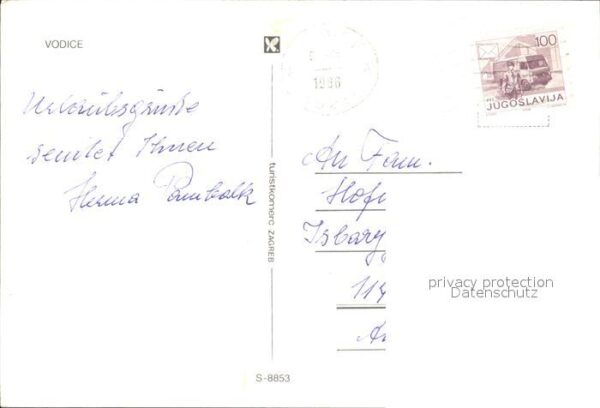 VODICE
1986
100
JUGOSLAVIJA
Urlaubsgrüße
sendet Ihnen
Herma Pambalk
turistkomerc ZAGREB
An Fam.
Hofi
Isbary
114
privacy protection
Datenschutz
S-8853